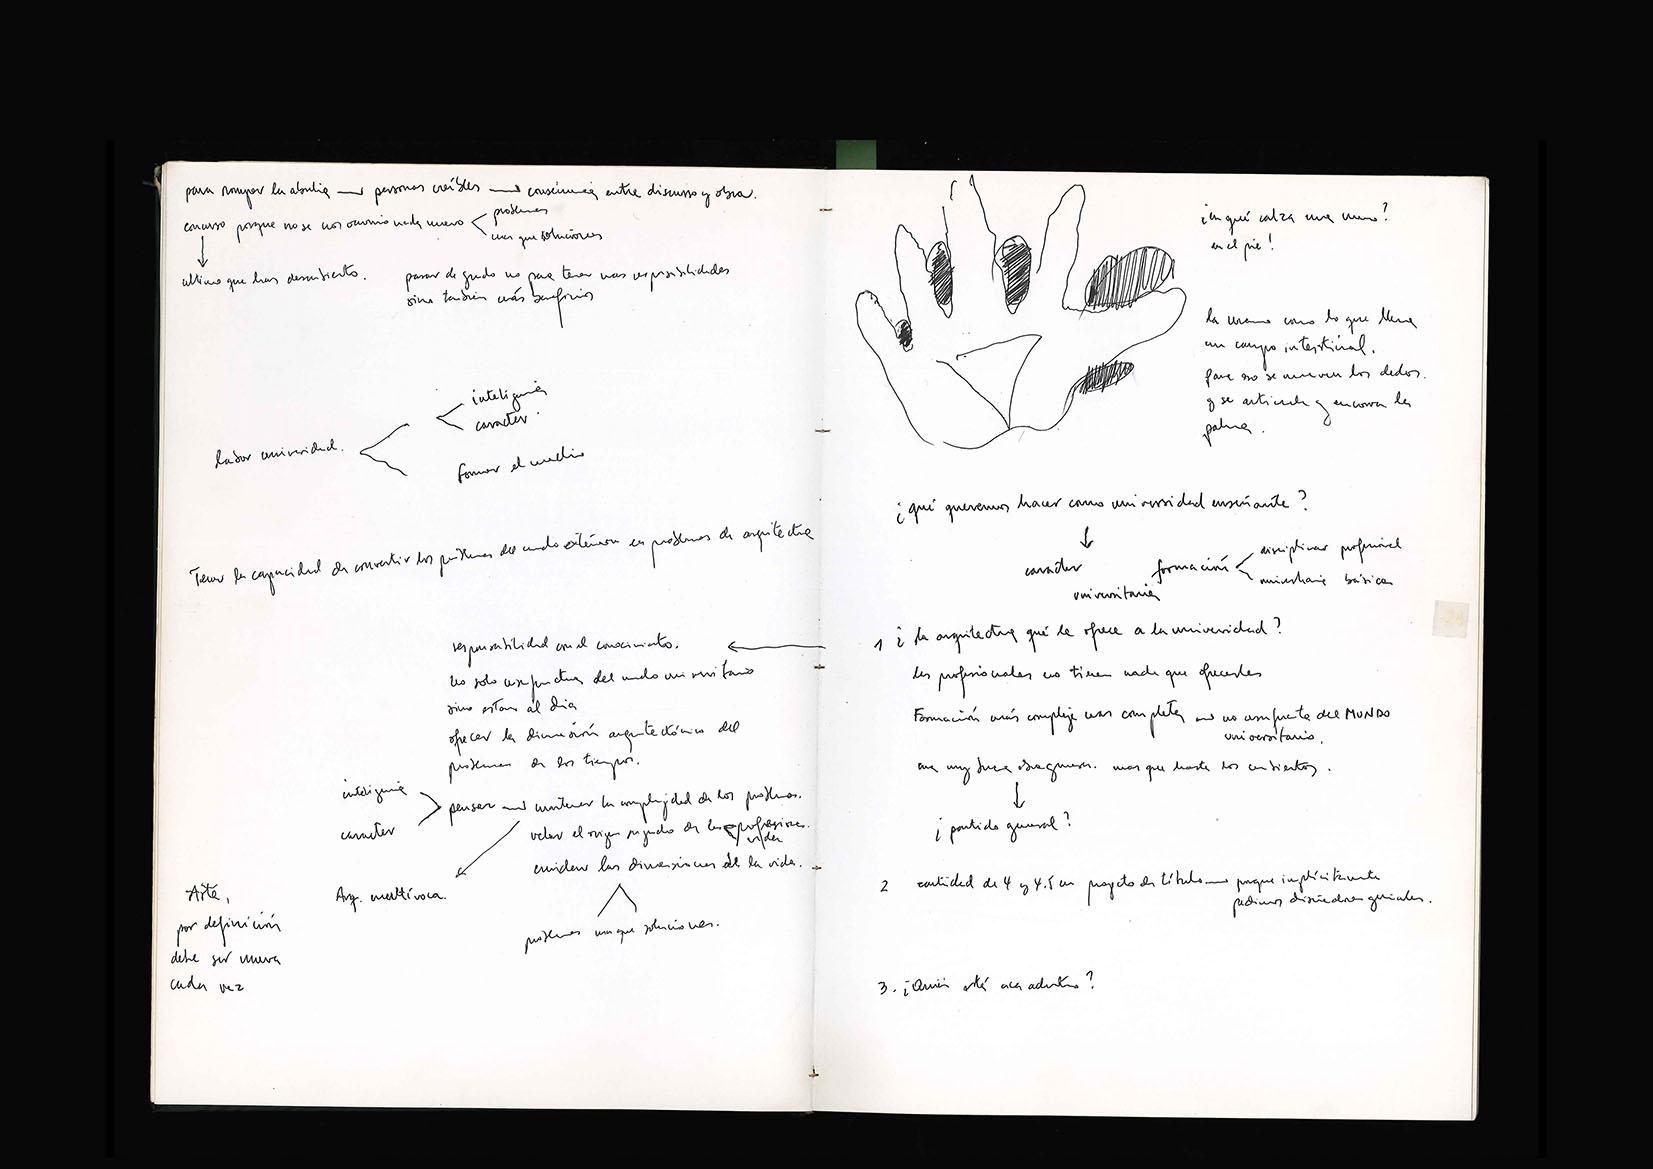 para romper la abulia → personas creíbles → consecuencia entre discurso y obra.
concurso porque no se nos ocurrió nada nuevo < problemas
mas que soluciones
ultimo que has descubierto.
pasar de grado no para tener mas responsabilidades
sino también más beneficios
labor universidad. <
inteligencia
caracter.
formar el medio
Tener la capacidad de convertir los problemas del mundo exterior en problemas de arquitectura
responsabilidad con el conocimiento.
no solo del mundo universitario
sino estar al dia
ofrecer la dimensión arquitectónica del
problema de los tiempos.
inteligencia
caracter
pensar → mantener la complejidad de los problemas.
velar el origen de las profesiones.
vida
cuidar las dimensiones de la vida.
problemas mas que soluciones.
Arq. multívoca.
Arte,
por definición
debe ser nueva
cada vez
¿en qué calza una mano?
en el pie!
la mano como lo que llena
un campo intestinal.
para eso se mueven los dedos.
y se articula y encorva la
palma.
¿qué queremos hacer como universidad enseñante?
caracter
universitaria
formación < disciplinar profesional
universitaria básica
1 ¿la arquitectura qué le ofrece a la universidad?
los profesionales no tienen nada que ofrecerles
Formación más compleja mas completa → no del MUNDO
universitario.
mas que hasta los cubiertos.
¿partido general?
2 cantidad de 4 y 4.5 en proyecto de título → porque implícitamente
pedimos diseñadores geniales.
3. ¿Quién está acá adentro?